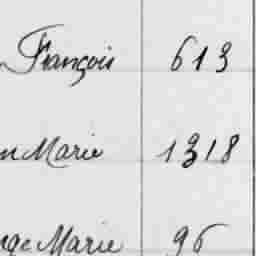 François 613
n Marie 1318
ge Marie 96